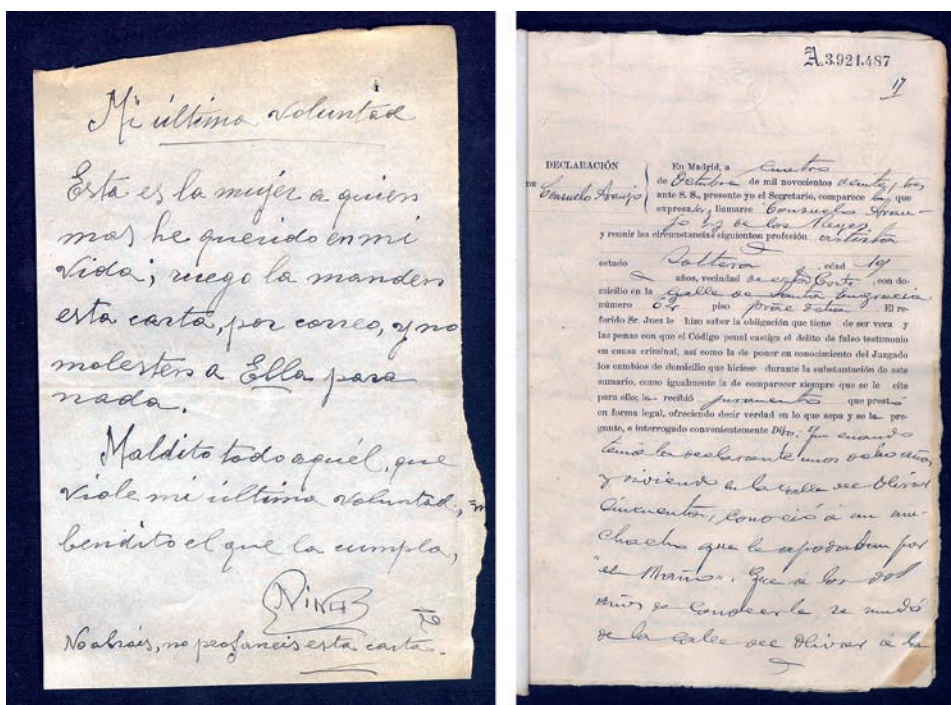 Mi última voluntad
Esta es la mujer a quien
mas he querido en mi
vida; ruego la manden
esta carta, por correo, y no
molesten a Ella para
nada.
Maldito todo aquél, que
viole mi última voluntad, y
bendito el que la cumpla,
No abráis, no profaneis esta carta.
A.3.921.487
17
DECLARACIÓN
DE
Consuelo Araujo
En Madrid, a cuatro
de Octubre de mil novecientos veinte y tres
ante S. S., presente yo el Secretario, comparece la que
expresa llamarse Consuelo Arau-
jo de los Reyes
y reunir las circunstancias siguientes: profesión artista
estado Soltera, edad 19
años, vecindad de esta Corte, con do-
micilio en la calle de Santa Engracia
número 62 piso pral dcha. El re-
ferido Sr. Juez le hizo saber la obligación que tiene de ser vera y
las penas con que el Código penal castiga el delito de falso testimonio
en causa criminal, así como la de poner en conocimiento del Juzgado
los cambios de domicilio que hiciese durante la substantación de este
sumario, como igualmente la de comparecer siempre que se le cite
para ello; le recibió juramento que prestó
en forma legal, ofreciendo decir verdad en lo que sepa y se le pre-
gunte, e interrogado convenientemente Dijo: Que cuando
tenía la declarante unos ocho años
y viviendo en la calle del Olivar
cincuenta, conoció á un mu-
chacho que le apodaban por
"el Maño". Que á los dos
años de conocerle se mudó
de la calle del Olivar á la